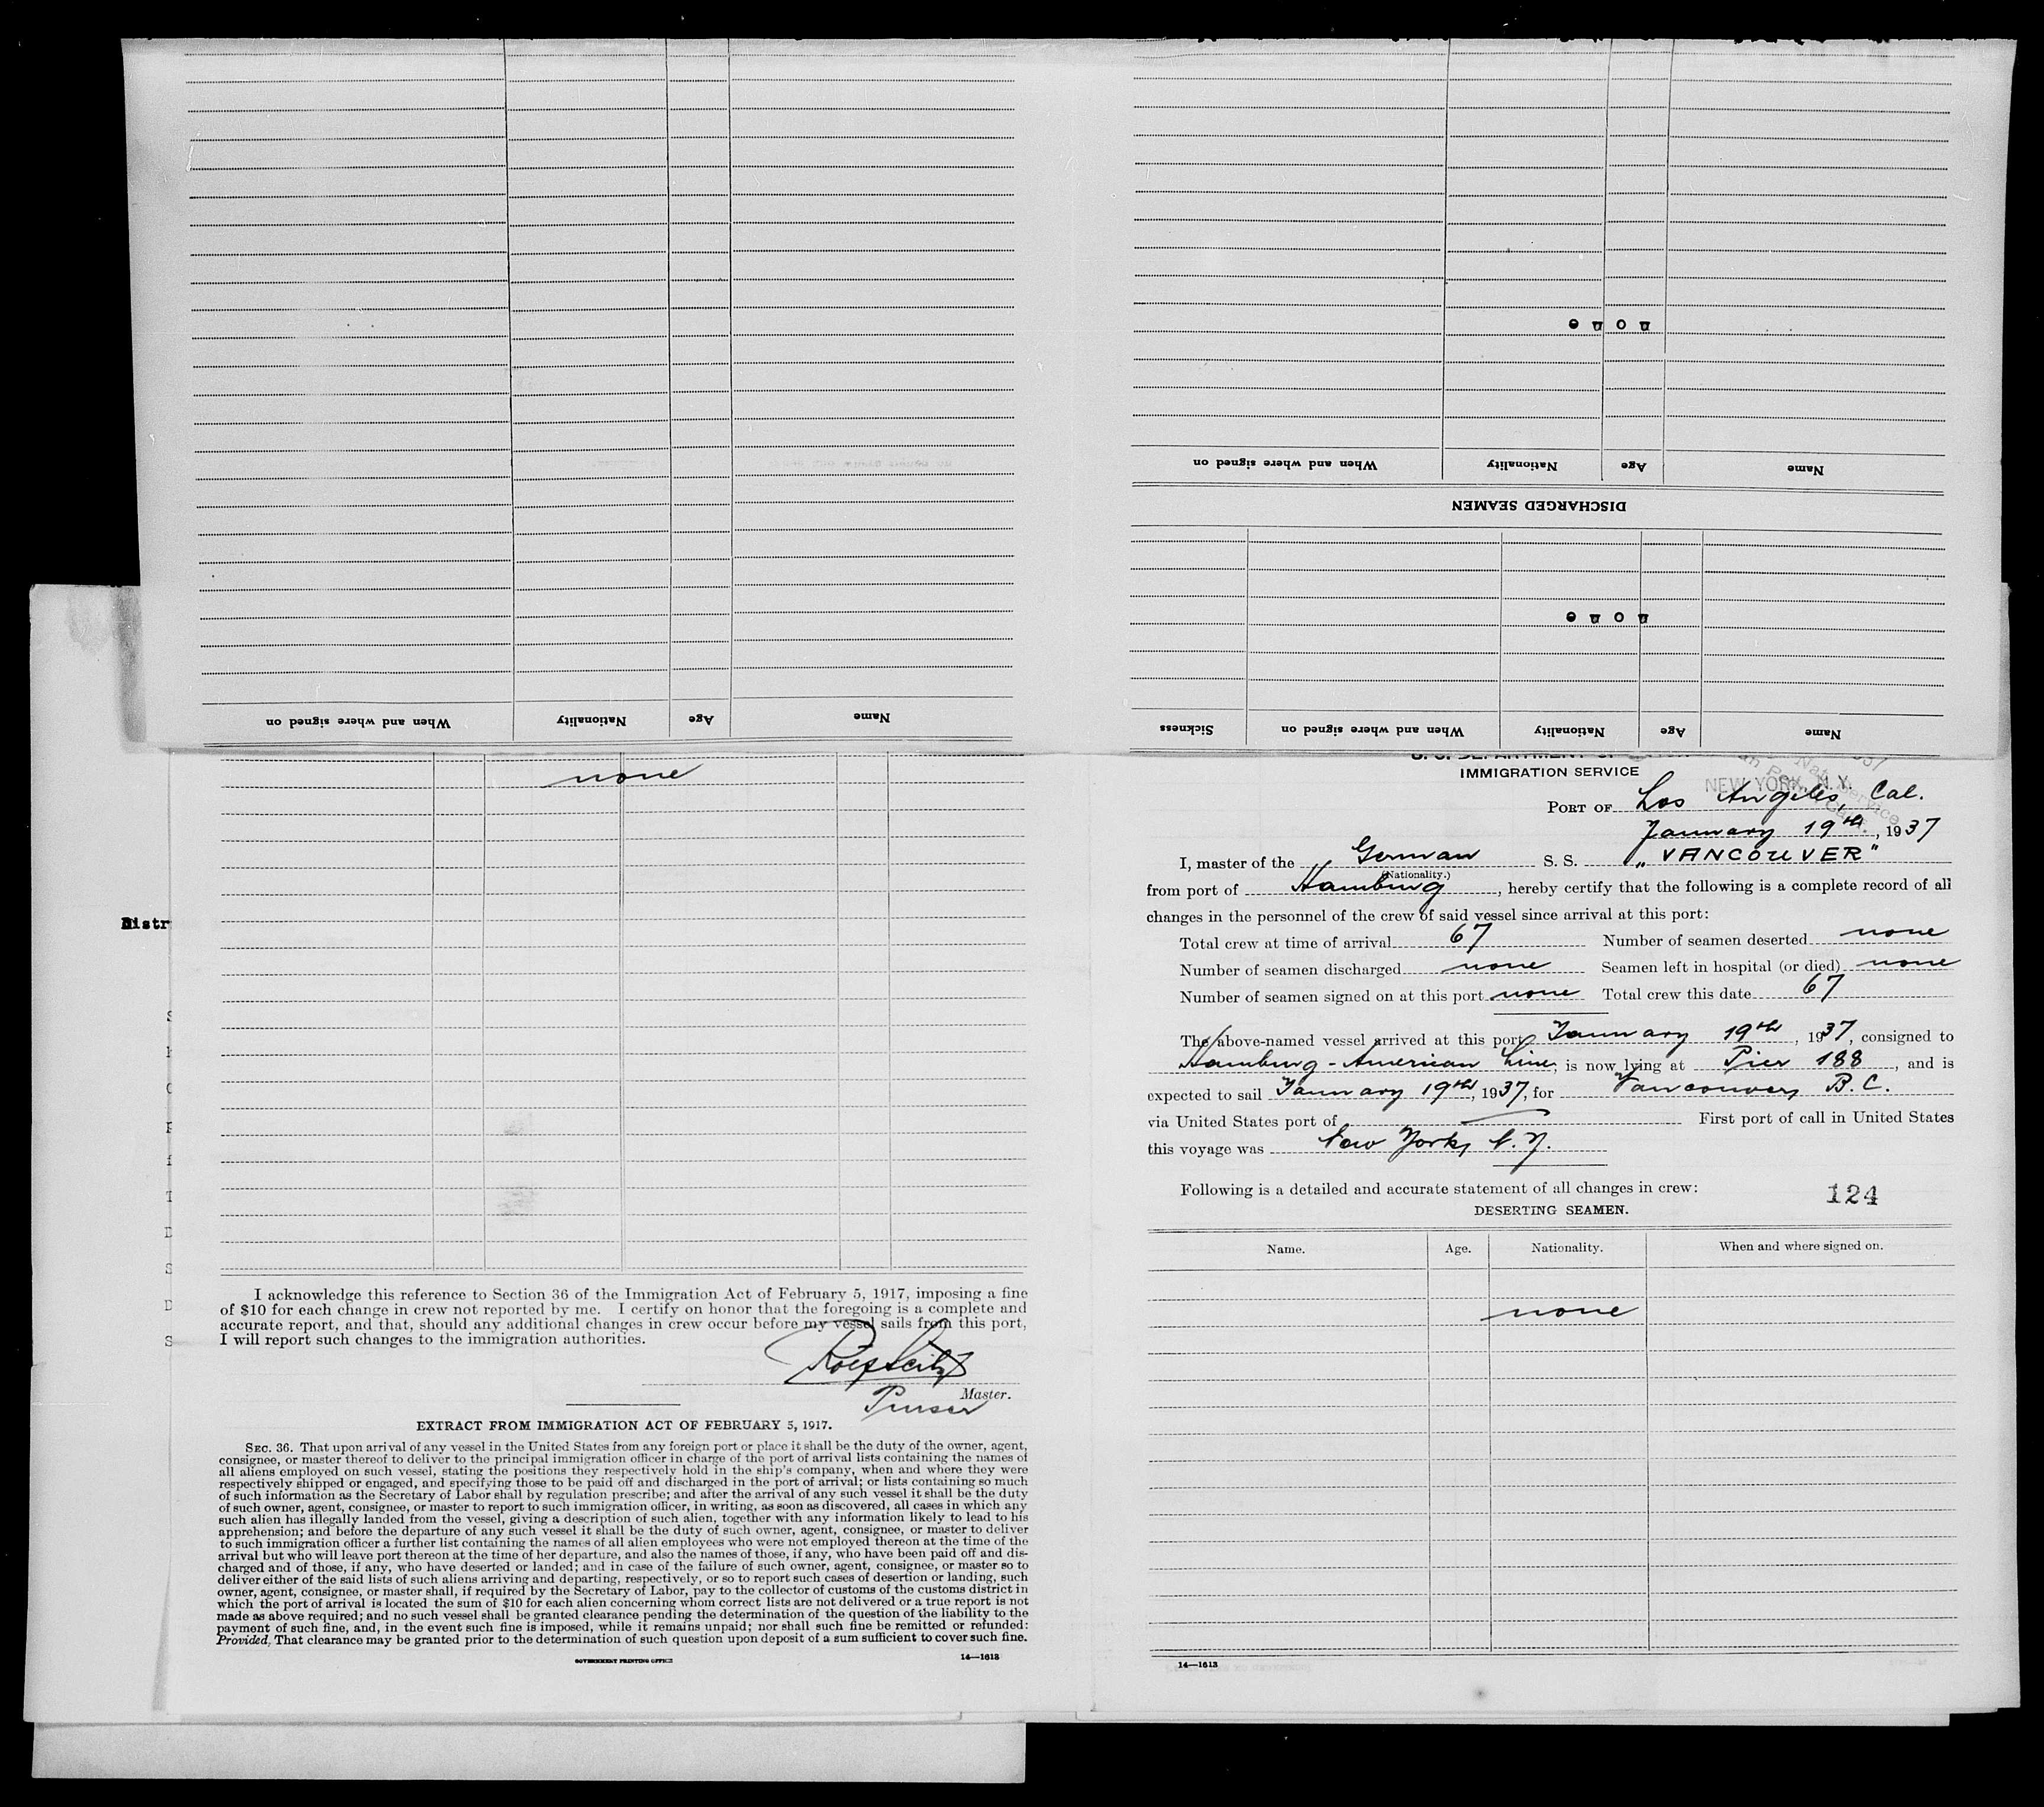 Name Age Nationality When and where signed on
none
DISCHARGED SEAMEN
Name Age Nationality When and where signed on
none
Name Age Nationality When and where signed on Sickness
Name Age Nationality When and where signed on
none
Distr
I acknowledge this reference to Section 36 of the Immigration Act of February 5, 1917, imposing a fine
of $10 for each change in crew not reported by me. I certify on honor that the foregoing is a complete and
accurate report, and that, should any additional changes in crew occur before my vessel sails from this port,
I will report such changes to the immigration authorities.
Master.
Purser
EXTRACT FROM IMMIGRATION ACT OF FEBRUARY 5, 1917.
SEC. 36. That upon arrival of any vessel in the United States from any foreign port or place it shall be the duty of the owner, agent,
consignee, or master thereof to deliver to the principal immigration officer in charge of the port of arrival lists containing the names of
all aliens employed on such vessel, stating the positions they respectively hold in the ship's company, when and where they were
respectively shipped or engaged, and specifying those to be paid off and discharged in the port of arrival; or lists containing so much
of such information as the Secretary of Labor shall by regulation prescribe; and after the arrival of any such vessel it shall be the duty
of such owner, agent, consignee, or master to report to such immigration officer, in writing, as soon as discovered, all cases in which any
such alien has illegally landed from the vessel, giving a description of such alien, together with any information likely to lead to his
apprehension; and before the departure of any such vessel it shall be the duty of such owner, agent, consignee, or master to deliver
to such immigration officer a further list containing the names of all alien employees who were not employed thereon at the time of the
arrival but who will leave port thereon at the time of her departure, and also the names of those, if any, who have been paid off and dis-
charged and of those, if any, who have deserted or landed; and in case of the failure of such owner, agent, consignee, or master so to
deliver either of the said lists of such aliens arriving and departing, respectively, or so to report such cases of desertion or landing, such
owner, agent, consignee, or master shall, if required by the Secretary of Labor, pay to the collector of customs of the customs district in
which the port of arrival is located the sum of $10 for each alien concerning whom correct lists are not delivered or a true report is not
made as above required; and no such vessel shall be granted clearance pending the determination of the question of the liability to the
payment of such fine, and, in the event such fine is imposed, while it remains unpaid; nor shall such fine be remitted or refunded:
Provided, That clearance may be granted prior to the determination of such question upon deposit of a sum sufficient to cover such fine.
GOVERNMENT PRINTING OFFICE 14—1613
IMMIGRATION SERVICE
NEW YORK, N.Y.
PORT OF Los Angeles, Cal.
January 19th, 1937
I, master of the German S. S. "VANCOUVER"
(Nationality.)
from port of Hamburg, hereby certify that the following is a complete record of all
changes in the personnel of the crew of said vessel since arrival at this port:
Total crew at time of arrival 67 Number of seamen deserted none
Number of seamen discharged none Seamen left in hospital (or died) none
Number of seamen signed on at this port none Total crew this date 67
The above-named vessel arrived at this port January 19th, 1937, consigned to
Hamburg-American Line, is now lying at Pier 188, and is
expected to sail January 19th, 1937, for Vancouver, B.C.
via United States port of First port of call in United States
this voyage was New York, N.Y.
Following is a detailed and accurate statement of all changes in crew:
124
DESERTING SEAMEN.
Name. Age. Nationality. When and where signed on.
none
14—1613